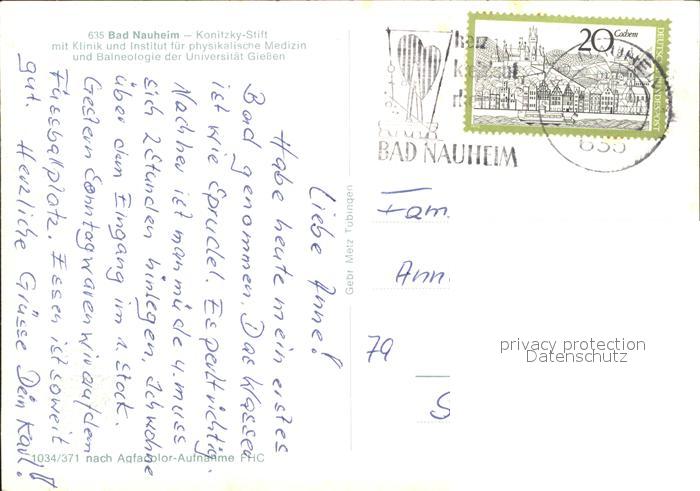 635 Bad Nauheim – Konitzky-Stift
mit Klinik und Institut für physikalische Medizin
und Balneologie der Universität Gießen
Liebe Anne!
Habe heute mein erstes
Bad genommen. Das Wasser
ist wie Sprudel. Es perlt richtig.
Nachher ist man müde u. muss
sich 2 Stunden hinlegen. Ich wohne
über dem Eingang im 1. Stock.
Gestern Sonntag waren wir auf dem
Fussballplatz. Essen ist soweit
gut. Herzliche Grüsse Dein Karl!
1034/371 nach Agfacolor-Aufnahme FHC
Gebr Metz Tübingen
BAD NAUHEIM
20
Cochem
DEUTSCHE BUNDESPOST
635
Fam.
Ann
79
S
privacy protection
Datenschutz